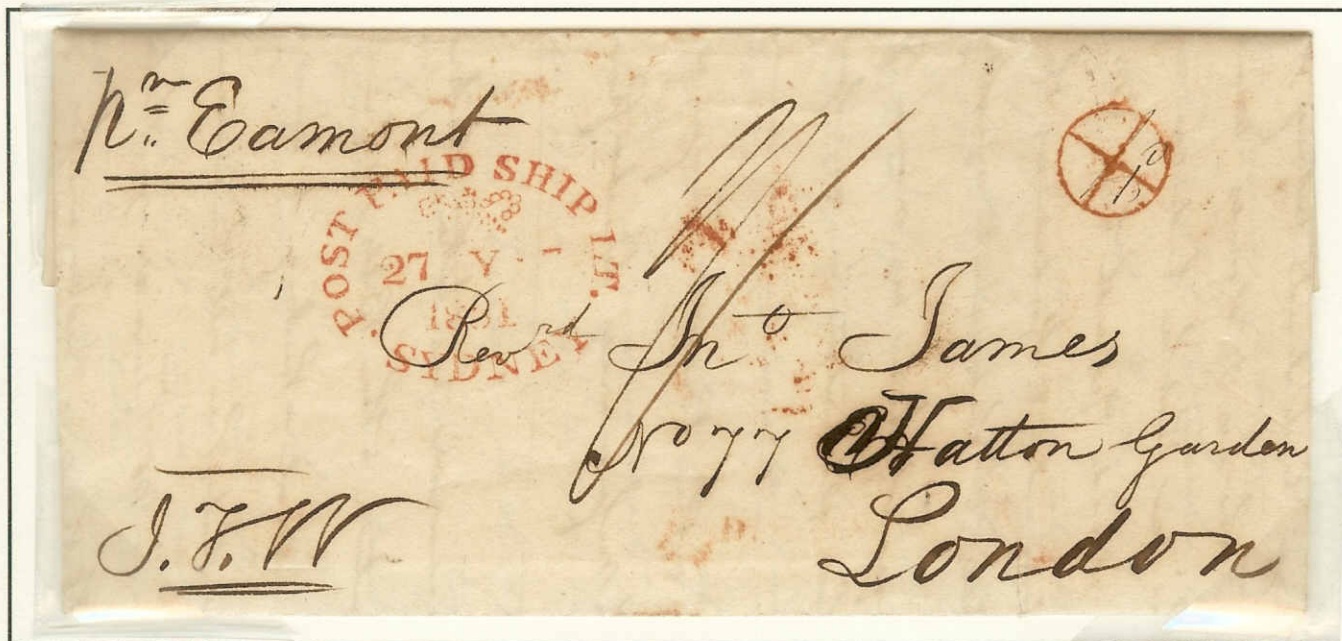 pr Eamont
POST PAID SHIP LT.
27
1831
SYDNEY
Revrd Jno James
No 77 Hatton Garden
London
J. F. W